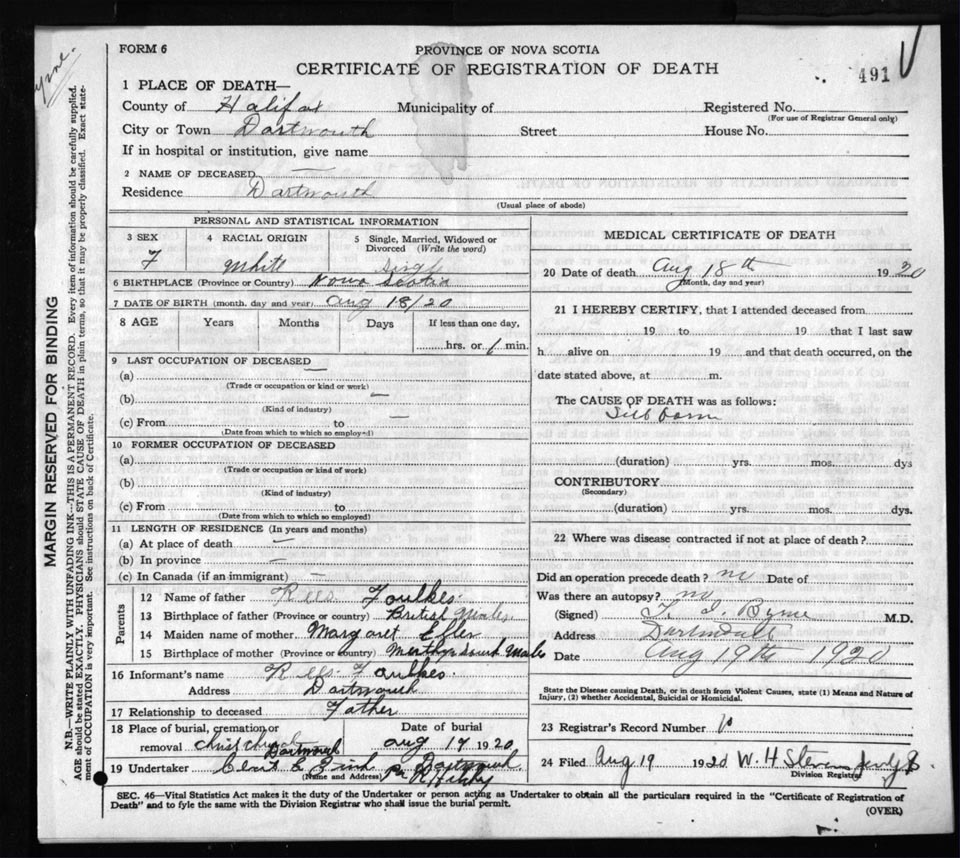 FORM 6
PROVINCE OF NOVA SCOTIA
CERTIFICATE OF REGISTRATION OF DEATH
491
1 PLACE OF DEATH—
County of Halifax Municipality of Registered No.
(For use of Registrar General only)
City or Town Dartmouth Street House No.
If in hospital or institution, give name
2 NAME OF DECEASED —
Residence Dartmouth
(Usual place of abode)
PERSONAL AND STATISTICAL INFORMATION
3 SEX 4 RACIAL ORIGIN 5 Single, Married, Widowed or Divorced (Write the word)
F White Single
6 BIRTHPLACE (Province or Country) Nova Scotia
7 DATE OF BIRTH (month, day and year) Aug 18/20
8 AGE Years Months Days If less than one day,
hrs. or 1 min.
9 LAST OCCUPATION OF DECEASED —
(a)
(Trade or occupation or kind or work)
(b) —
(Kind of industry)
(c) From to —
(Date from which to which so employed)
10 FORMER OCCUPATION OF DECEASED
(a)
(Trade or occupation or kind of work)
(b)
(Kind of industry)
(c) From to
(Date from which to which so employed)
11 LENGTH OF RESIDENCE (In years and months)
(a) At place of death —
(b) In province —
(c) In Canada (if an immigrant) —
Parents
12 Name of father Rees Foulkes
13 Birthplace of father (Province or country) British Wales
14 Maiden name of mother Margaret
15 Birthplace of mother (Province or country) Merthyr South Wales
16 Informant's name Rees Foulkes
Address Dartmouth
17 Relationship to deceased Father
18 Place of burial, cremation or removal Christ Church Dartmouth
Date of burial Aug 19 1920
19 Undertaker Dartmouth
(Name and Address)
MEDICAL CERTIFICATE OF DEATH
20 Date of death Aug 18th 1920
(Month, day and year)
21 I HEREBY CERTIFY, that I attended deceased from
19 to 19 that I last saw
h alive on 19 and that death occurred, on the
date stated above, at m.
The CAUSE OF DEATH was as follows:
Still born
(duration) yrs. mos. dys
CONTRIBUTORY
(Secondary)
(duration) yrs. mos. dys.
22 Where was disease contracted if not at place of death?
Did an operation precede death? no Date of
Was there an autopsy? no
(Signed) Byrne M.D.
Address Dartmouth
Date Aug 19th 1920
State the Disease causing Death, or in death from Violent Causes, state (1) Means and Nature of
Injury, (2) whether Accidental, Suicidal or Homicidal.
23 Registrar's Record Number
24 Filed Aug 19 1920 W. H. Stevens
Division Registrar
SEC. 46—Vital Statistics Act makes it the duty of the Undertaker or person acting as Undertaker to obtain all the particulars required in the "Certificate of Registration of
Death" and to fyle the same with the Division Registrar who shall issue the burial permit.
(OVER)
MARGIN RESERVED FOR BINDING
N.B.—WRITE PLAINLY WITH UNFADING INK—THIS IS A PERMANENT RECORD. Every item of information should be carefully supplied.
AGE should be stated EXACTLY. PHYSICIANS should STATE CAUSE OF DEATH in plain terms, so that it may be properly classified. Exact state-
ment of OCCUPATION is very important. See instructions on back of Certificate.